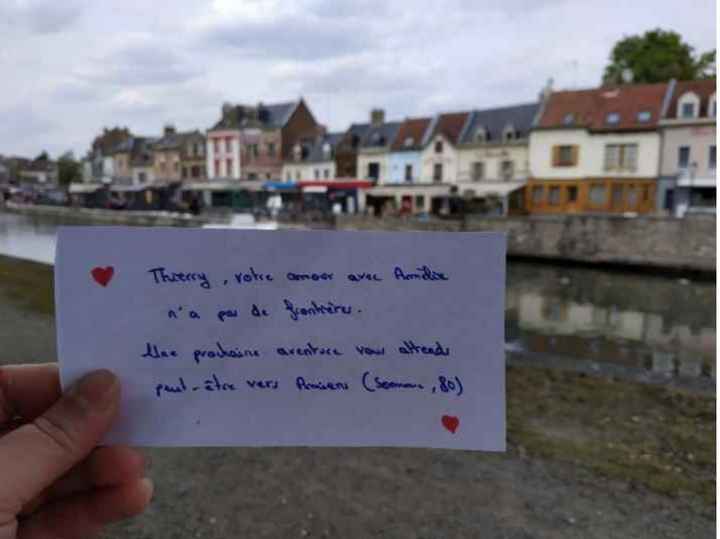 Thierry, votre amour avec Amélie
n'a pas de frontière.
Une prochaine aventure vous attends
peut-être vers Amiens (Somme, 80)